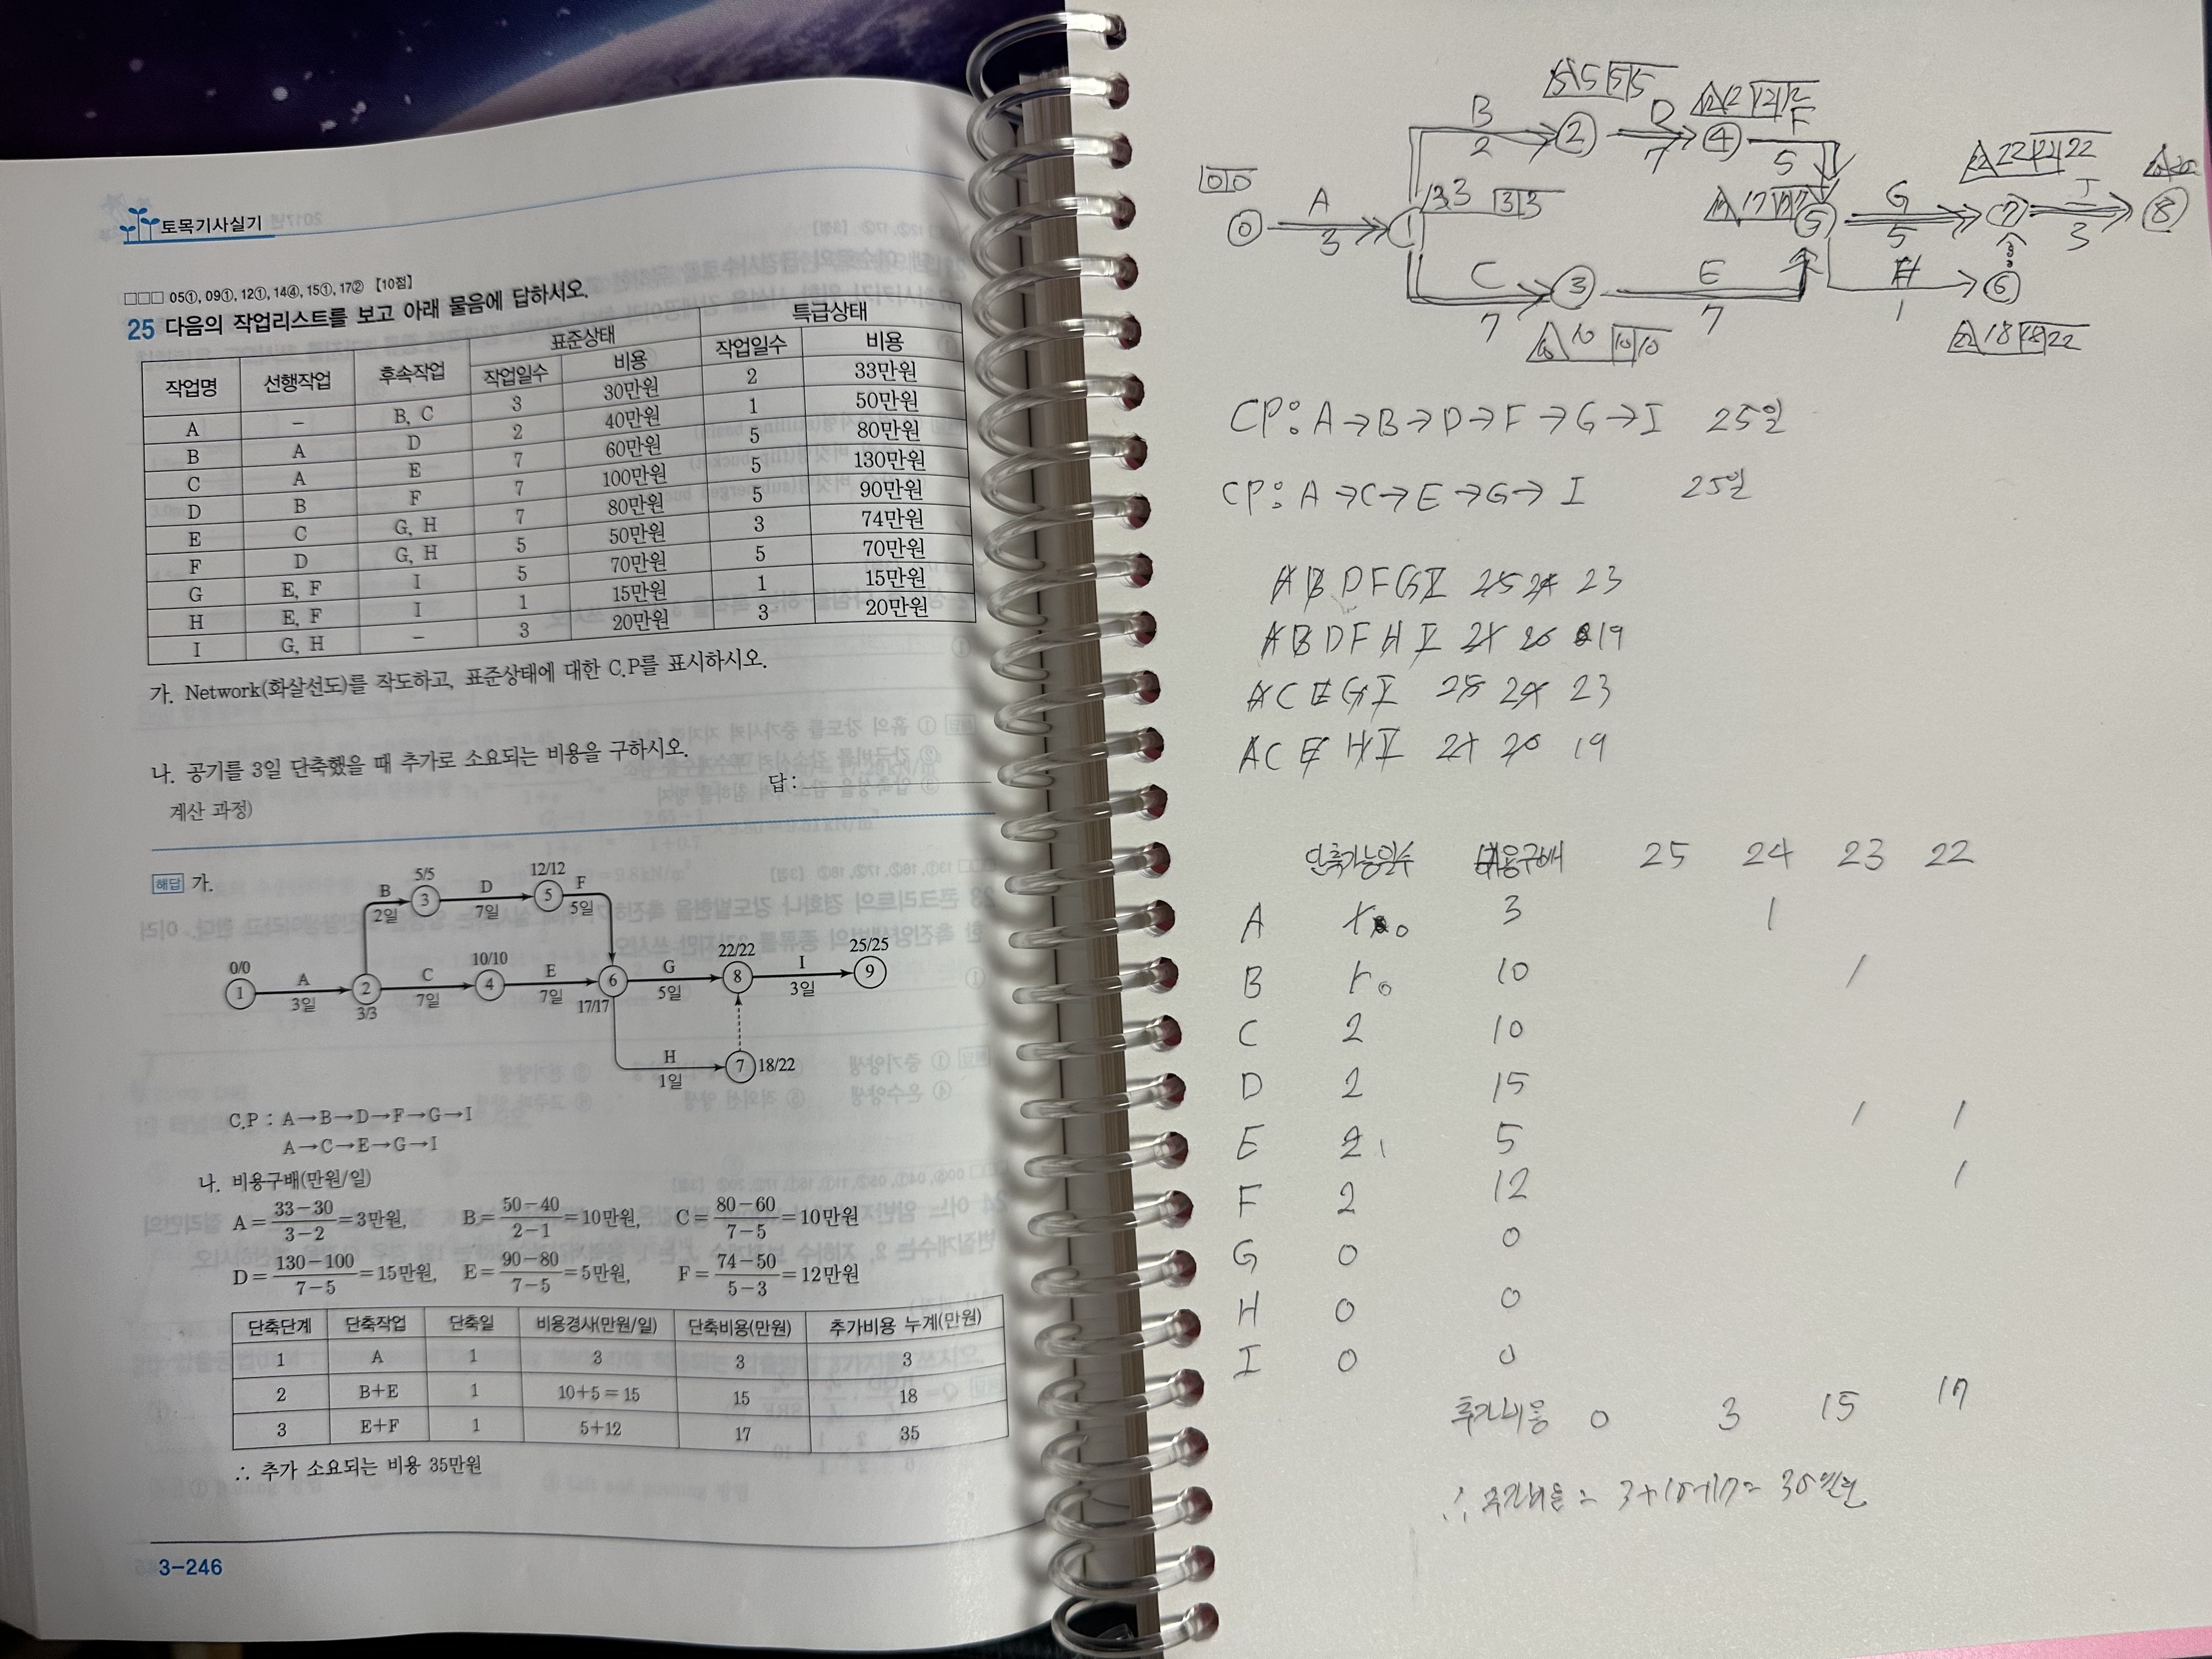 토목기사실기
□□□ 05①, 09①, 12①, 14④, 15①, 17② 【10점】
25 다음의 작업리스트를 보고 아래 물음에 답하시오.
작업명 선행작업 후속작업 표준상태 특급상태
작업일수 비용 작업일수 비용
A - B, C 3 30만원 2 33만원
B A D 2 40만원 1 50만원
C A E 7 60만원 5 80만원
D B F 7 100만원 5 130만원
E C G, H 7 80만원 5 90만원
F D G, H 5 50만원 3 74만원
G E, F I 5 70만원 5 70만원
H E, F I 1 15만원 1 15만원
I G, H - 3 20만원 3 20만원
가. Network(화살선도)를 작도하고, 표준상태에 대한 C.P를 표시하시오.
나. 공기를 3일 단축했을 때 추가로 소요되는 비용을 구하시오.
계산 과정) 답:
해답 가.
5/5 12/12
B 3 D 5 F
2일 7일 5일
0/0 10/10 22/22 25/25
1 A 2 C 4 E 6 G 8 I 9
3일 7일 7일 5일 3일
3/3 17/17
H 7 18/22
1일
C.P : A→B→D→F→G→I
A→C→E→G→I
나. 비용구배(만원/일)
A = 33-30 / 3-2 = 3만원, B = 50-40 / 2-1 = 10만원, C = 80-60 / 7-5 = 10만원
D = 130-100 / 7-5 = 15만원, E = 90-80 / 7-5 = 5만원, F = 74-50 / 5-3 = 12만원
단축단계 단축작업 단축일 비용경사(만원/일) 단축비용(만원) 추가비용 누계(만원)
1 A 1 3 3 3
2 B+E 1 10+5=15 15 18
3 E+F 1 5+12 17 35
∴ 추가 소요되는 비용 35만원
3-246
B 2 D 4 F
2 7 5
0 A 1 5 G 7 I 8
3 5 3
C 3 E H 6
7 7 1
CP: A→B→D→F→G→I 25일
CP: A→C→E→G→I 25일
A B D F G I 25 24 23
A B D F H I 21 20 19
A C E G I 25 24 23
A C E H I 21 20 19
단축가능일수 비용구배 25 24 23 22
A 1 0 3 1
B 1 0 10 1
C 2 10
D 2 15
E 2 1 5 1 1
F 2 12 1
G 0 0
H 0 0
I 0 0
추가비용 0 3 15 17
∴ 추가비용 = 3+15+17=35만원